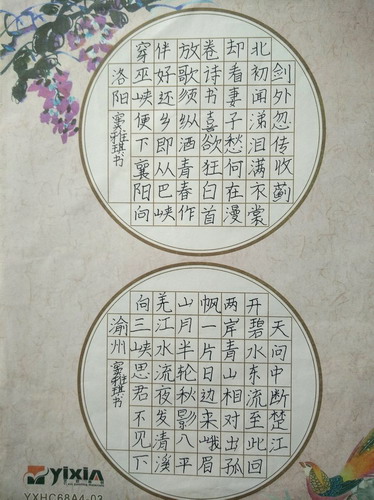 剑外忽传收蓟
北初闻涕泪满衣裳
却看妻子愁何在漫
卷诗书喜欲狂白首
放歌须纵酒青春作
伴好还乡即从巴峡
穿巫峡便下襄阳向
洛阳 窦雅琪书
天问中断楚江
开碧水东流至此回
两岸青山相对出孤
帆一片日边来峨眉
山月半轮秋影八平
羌江水流夜发清溪
向三峡思君不见下
渝州 窦雅琪书
yixin
YXHC68A4-03